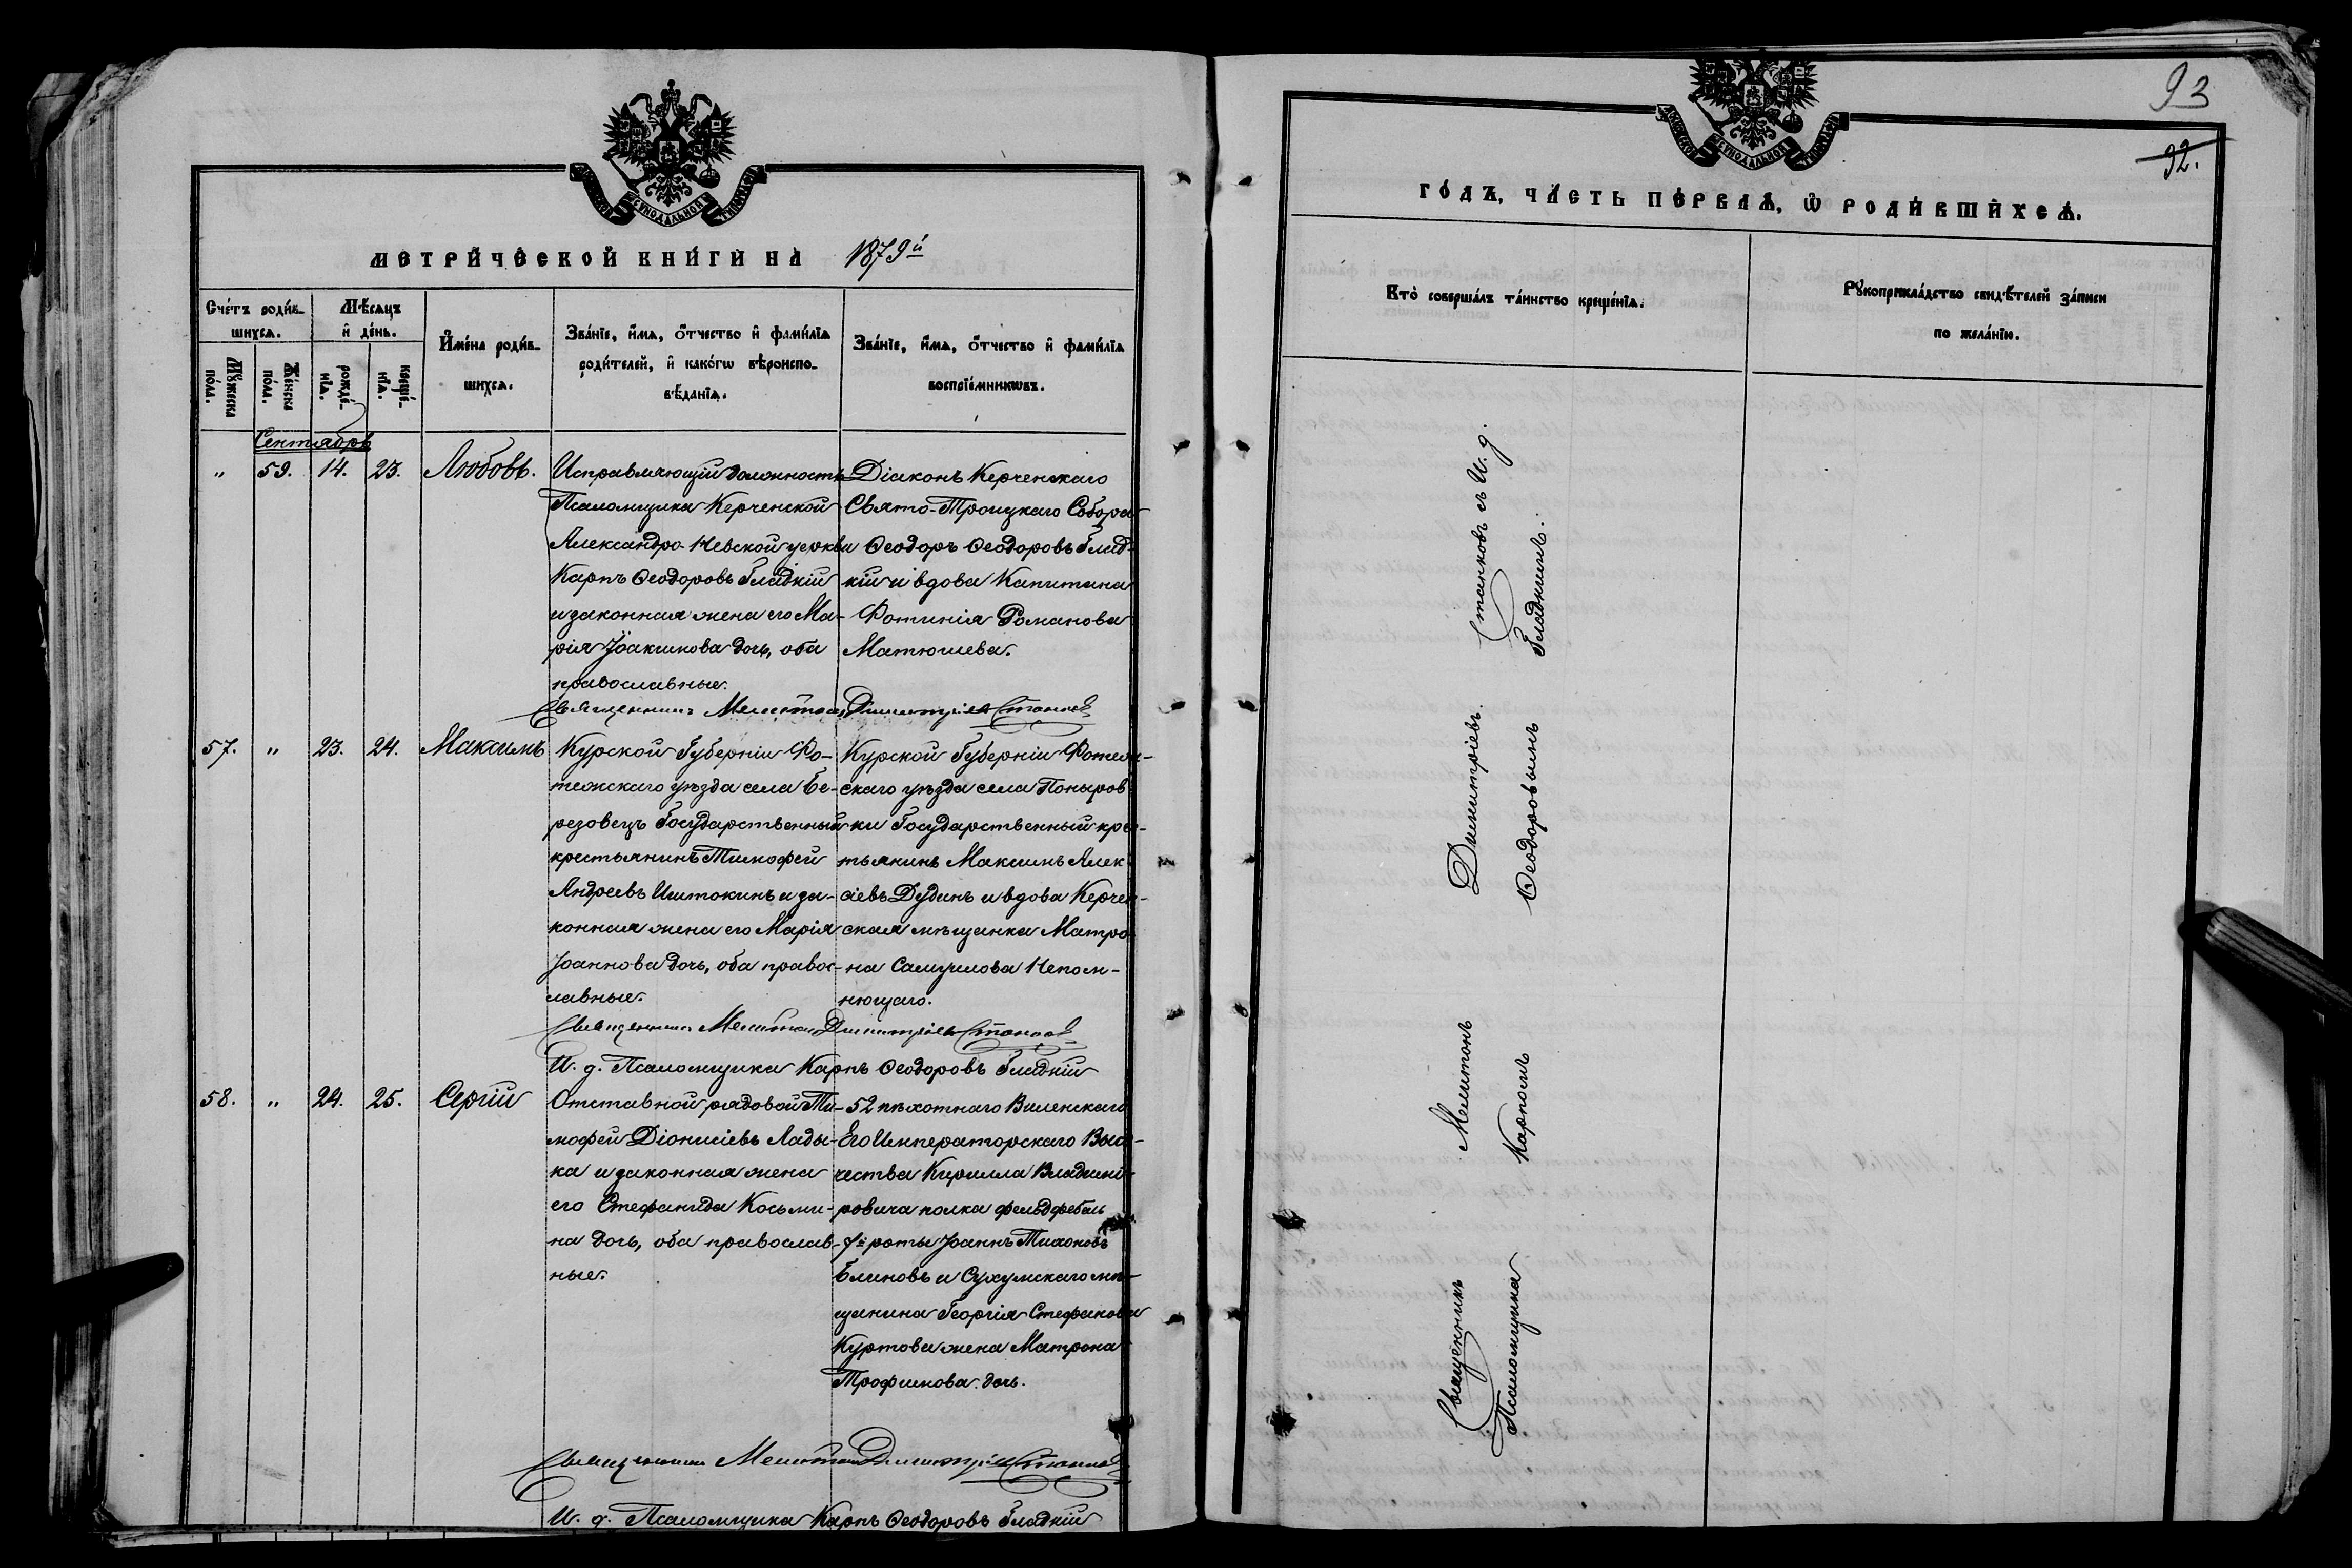 СѴНОДАЛЬНОЙ
МЕТРИЧЕСКОЙ КНИГИ НА 1879й
Счетъ родив-
шихся.
Мѣсяцъ
и день.
Имена родив-
шихся.
Званїе, имя, отчество и фамилїя
родителей, и какогѡ вѣроиспо-
вѣданїя.
Званїе, имя, отчество и фамилїя
воспрїемникѡвъ.
Мꙋжеска
пола.
Женска
пола.
рожде-
нїя.
креще-
нїя.
Сентябрь
" 59. 14. 23. Любовь.
Исправляющій должность
Псаломщика Керченской
Александро-Невской церкви
Карпъ Ѳеодоровъ Гладкій
и законная жена его Ма-
рія Іоакимова дочь, оба
православные.
Діаконъ Керченскаго
Свято-Троицкаго Собора
Ѳеодоръ Ѳеодоровъ Глад-
кій и вдова Капитана
Фотинія Романова
Матюшева.
Священникъ Мелитонъ Димитріевъ Станковъ
57. " 23. 24. Максимъ
Курской Губерніи Фо-
тежскаго уѣзда села Бе-
резовецъ Государственный
крестьянинъ Тимофей
Андреевъ Ишт​окинъ и за-
конная жена его Марія
Іоаннова дочь, оба правос-
лавные.
Курской Губерніи Фотеж-
скаго уѣзда села Поныров-
ки Государственный крес-
тьянинъ Максимъ Алек-
сіевъ Дудинъ и вдова Керчен-
ская мѣщанка Матро-
на Самуилова Непом-
нющаго.
Священникъ Мелитонъ Димитріевъ Станковъ
И. д. Псаломщика Карпъ Ѳеодоровъ Гладкій
58. " 24. 25. Сергій
Отставной рядовой Ти-
мофей Діонисіевъ Лады-
ка и законная жена
его Стефанида Косьми-
на дочь, оба православ-
ные.
52 пѣхотнаго Виленскаго
Его Императорскаго Высо-
чества Кирилла Владимі-
ровича полка фельдфебель
7й роты Іоаннъ Тихоновъ
Блиновъ и Сухумскаго мѣ-
щанина Георгія Стефанова
Куртова жена Матрона
Трофимова дочь.
Священникъ Мелитонъ Димитріевъ Станковъ
И. д. Псаломщика Карпъ Ѳеодоровъ Гладкій
93
92.
СѴНОДАЛЬНОЙ
ГОДЪ, ЧАСТЬ ПЕРВАЯ, Ѡ РОДИВШИХСЯ.
Кто совершалъ таинство крещенїя.
Рꙋкоприкладство свидѣтелей записи
по желанїю.
Священникъ Мелитонъ Димитріевъ Станковъ съ И. д.
Псаломщика Карпомъ Ѳеодоровымъ Гладкимъ.